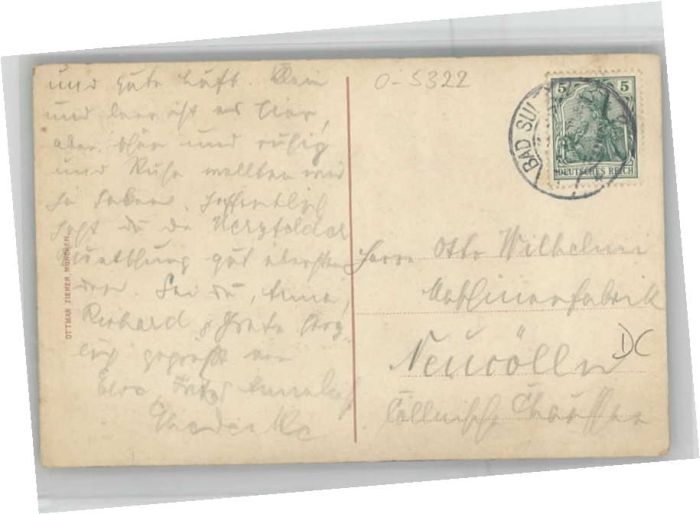 und gute Luft. Klein
und leer ist es hier,
aber schön und ruhig
und Ruhe wollten wir
ja haben. Hoffentlich
hast du da
gut überstan
den. Sei du, Anna,
Richard & Grete herz
lich gegrüßt von
OTTMAR ZIEHER, MÜNCHEN
O-5322
BAD SUL
5 5
DEUTSCHES REICH
Herrn Otto Wilhelmi
Maschinenfabrik
Neucölln
DC
Cöllnische Chaussee